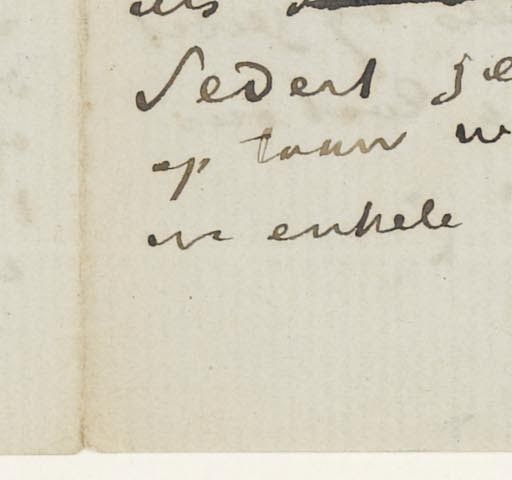 als
Sedert ge
op touw w
we enkele